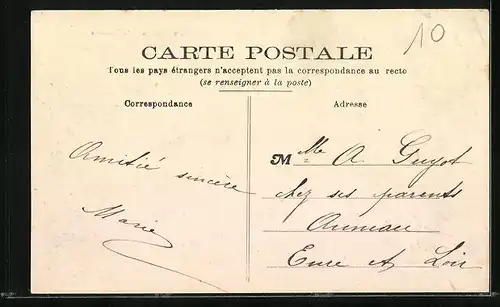 10
CARTE POSTALE
Tous les pays étrangers n'acceptent pas la correspondance au recto
(se renseigner à la poste)
Correspondance
Adresse
Amitié sincère
Marie
Mlle A. Guyot
chez ses parents
Auneau
Eure et Loir